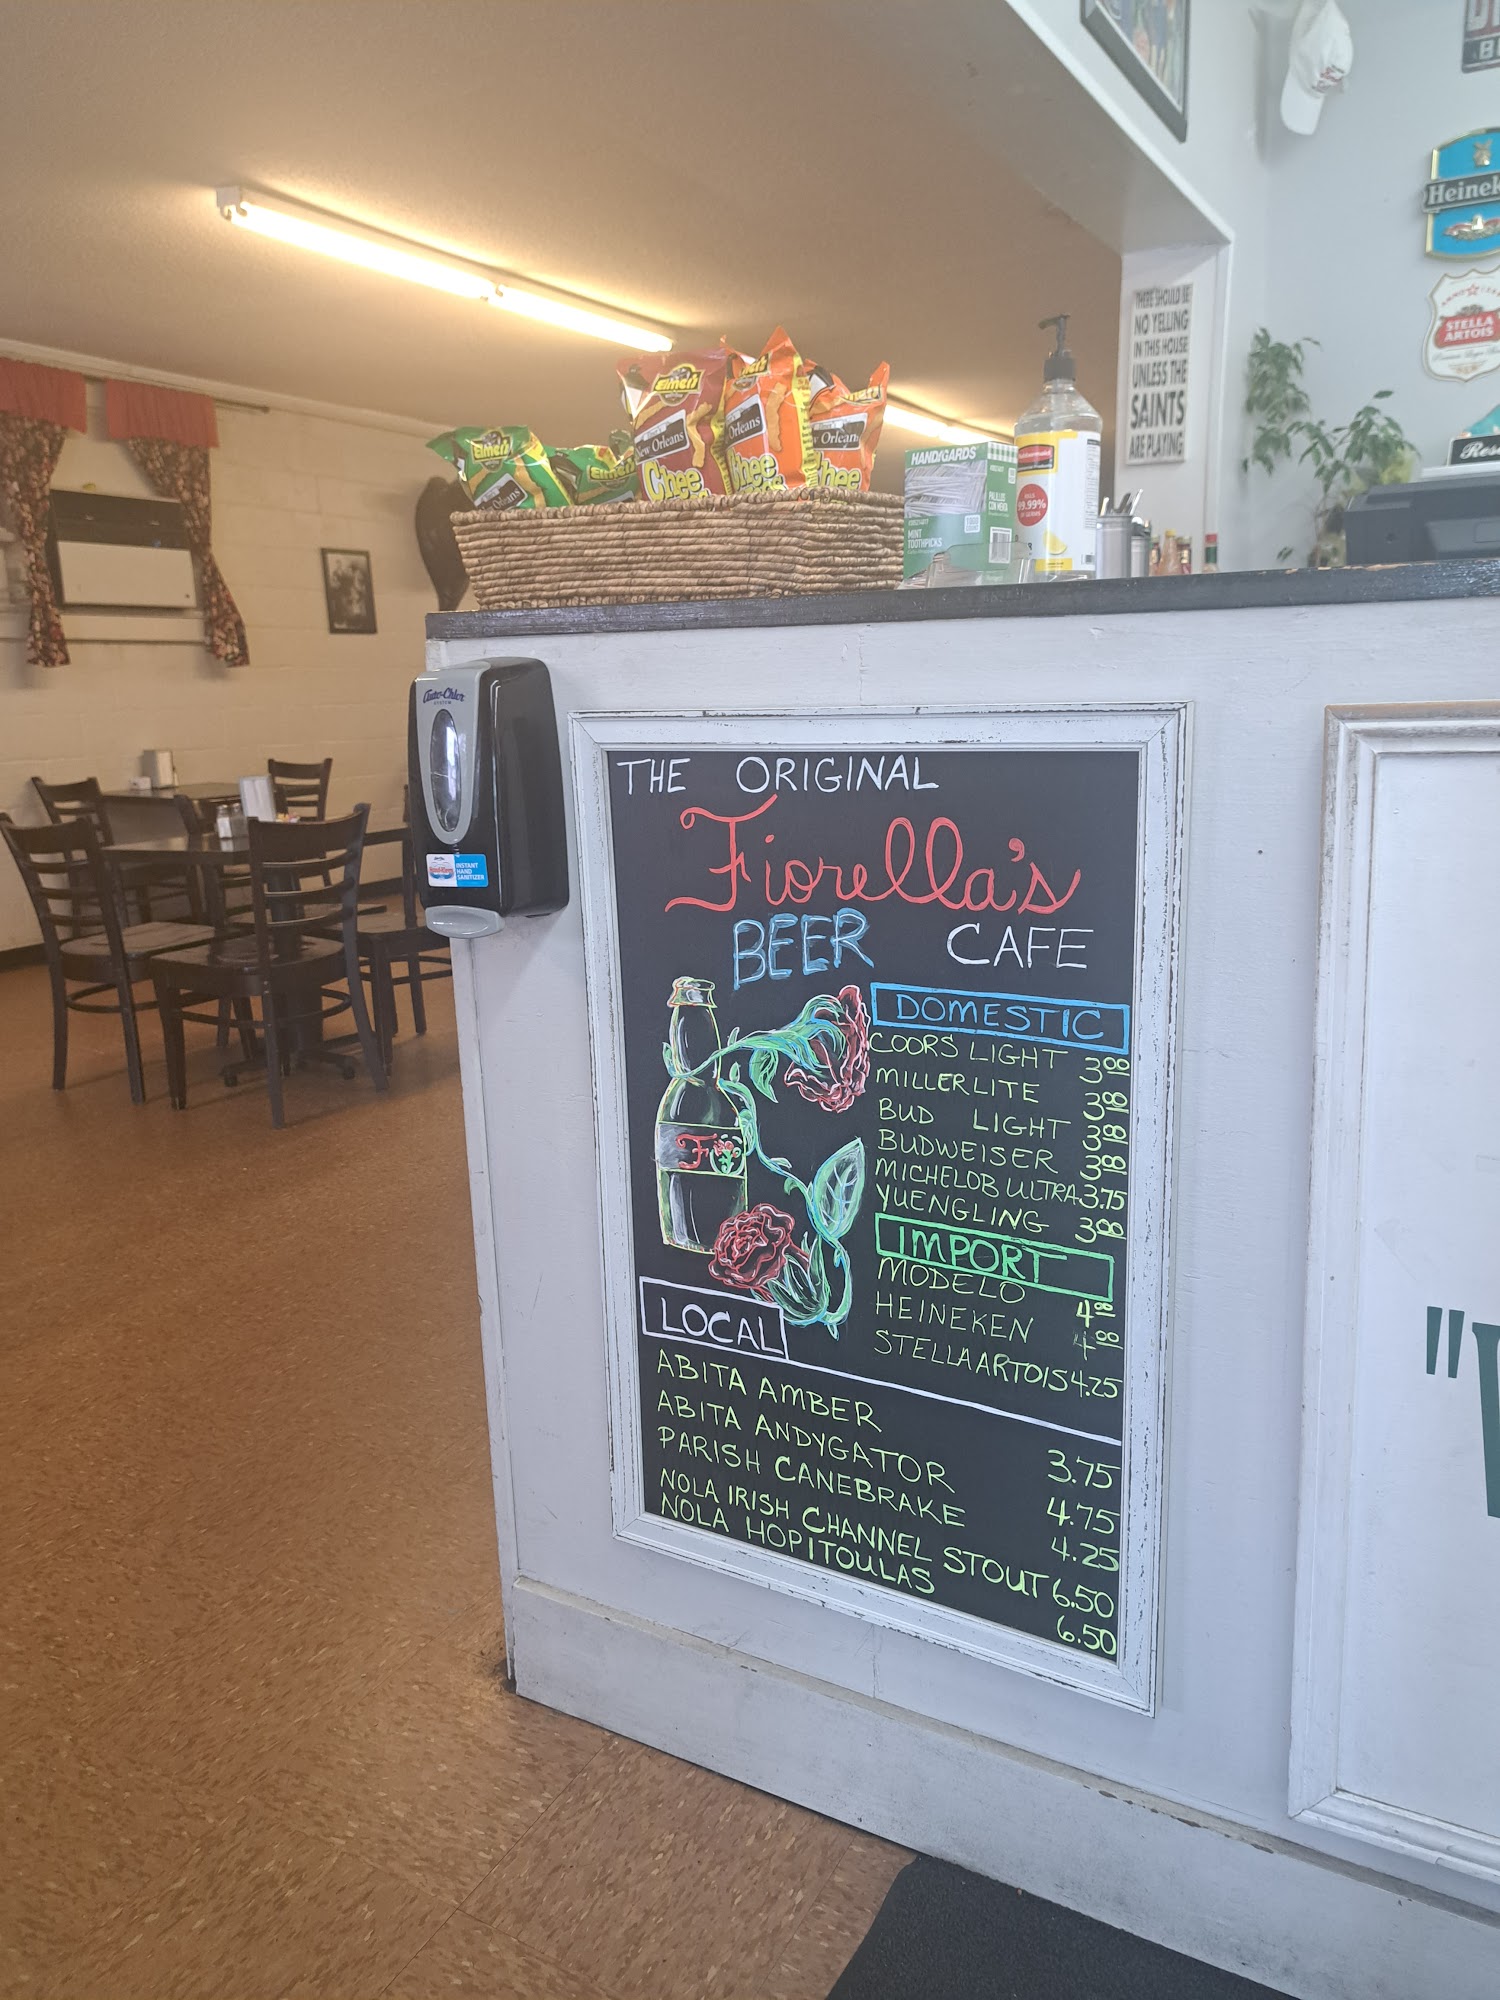 Heinek
STELLA
ARTOIS
THERE SHOULD BE
NO YELLING
IN THIS HOUSE
UNLESS THE
SAINTS
ARE PLAYING
Elmer's
New Orleans
Chee
Elmer's
Orleans
Chee
Orleans
Chee
Elmer's
Orleans
Elmer's
HANDIGARDS
PALILLOS
CON MENTA
MINT
TOOTHPICKS
Rubbermaid
99.99%
Res
Auto-Chlor
SYSTEM
INSTANT
HAND
SANITIZER
THE ORIGINAL
Fiorella's
BEER CAFE
DOMESTIC
COORS LIGHT 3.00
MILLER LITE 3.00
BUD LIGHT 3.00
BUDWEISER 3.00
MICHELOB ULTRA 3.75
YUENGLING 3.00
IMPORT
MODELO 4.00
HEINEKEN 4.00
STELLA ARTOIS 4.25
LOCAL
ABITA AMBER 3.75
ABITA ANDYGATOR 4.75
PARISH CANEBRAKE 4.25
NOLA IRISH CHANNEL STOUT 6.50
NOLA HOPITOULAS 6.50